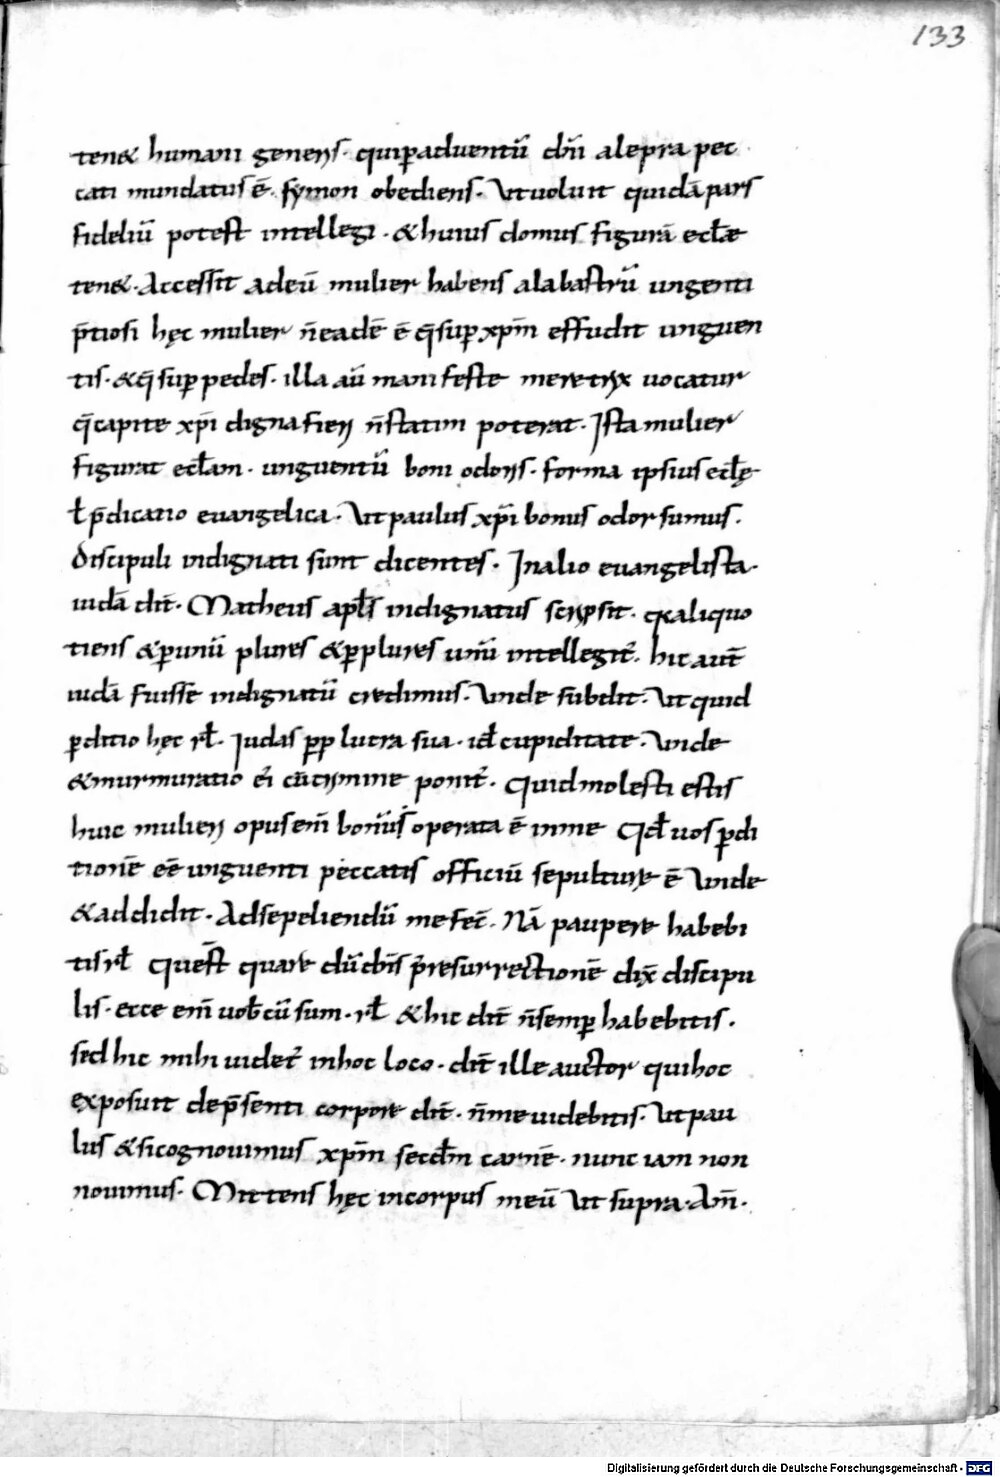 133
ten& humani generis· quip̄aduentū dn̄i alepra pec
cati mundatus ē· symon obediens· Ut uoluit quidā pars
fideliū potest intellegi· & huius domus figurā eccl̄ae
ten&· Accessit adeū mulier habens alabastrū ungenti
p̄tiosi hęc mulier n̄eadē ē q̄ sup̄ xp̄m effudit unguen
tis· & q̄ sup̄ pedes· illa aū manifeste meretrix uocatur
q̄ capite xp̄i digna fieri n̄ statim poterat· Ista mulier
figurat eccl̄am· unguentū boni odoris· forma ipsius eccl̄ę
ł p̄dicatio euangelica· Ut paulus xp̄i bonus odor sumus·
Discipuli indignati sunt dicentes· In alio euangelista·
iudā dix̄· Matheus apl̄s indignatus scripsit· q̄ aliquo
tiens & p̄ unū plures & p̄ plures unū intellegit̄· hic aut̄
iudā fuisse indignatū credimus· Unde subdit· Ut quid
p̄ditio hęc rł· Iudas p̄p lucra sua· id̄ cupiditate· Unde
& murmuratio ei cū crimine ponit̄· Quid molesti estis
huic mulieri opus em̄ bonū operata ē in me Qd̄ uos p̄di
tionē eē unguenti peccatis officiū sepulturę ē Unde
& addidit· Ad sepeliendū me fec̄· Nā paupere habebi
tis rł Quest̄ quare dū dn̄s p̄ resurrectionē dix̄ discipu
lis· ecce em̄ uob̄cū sum· rł & hic dix̄ n̄ semp̄ habebitis·
sed hic mihi uidet̄ in hoc loco· dix̄ ille auctor qui hoc
exposuit de p̄senti corpore dix̄· n̄ me uidebitis· Ut pau
lus & si cognouimus xp̄m secd̄m carnē· nunc iam non
nouimus· Mittens hęc in corpus meū Ut supra· Am̄·
Digitalisierung gefördert durch die Deutsche Forschungsgemeinschaft - DFG